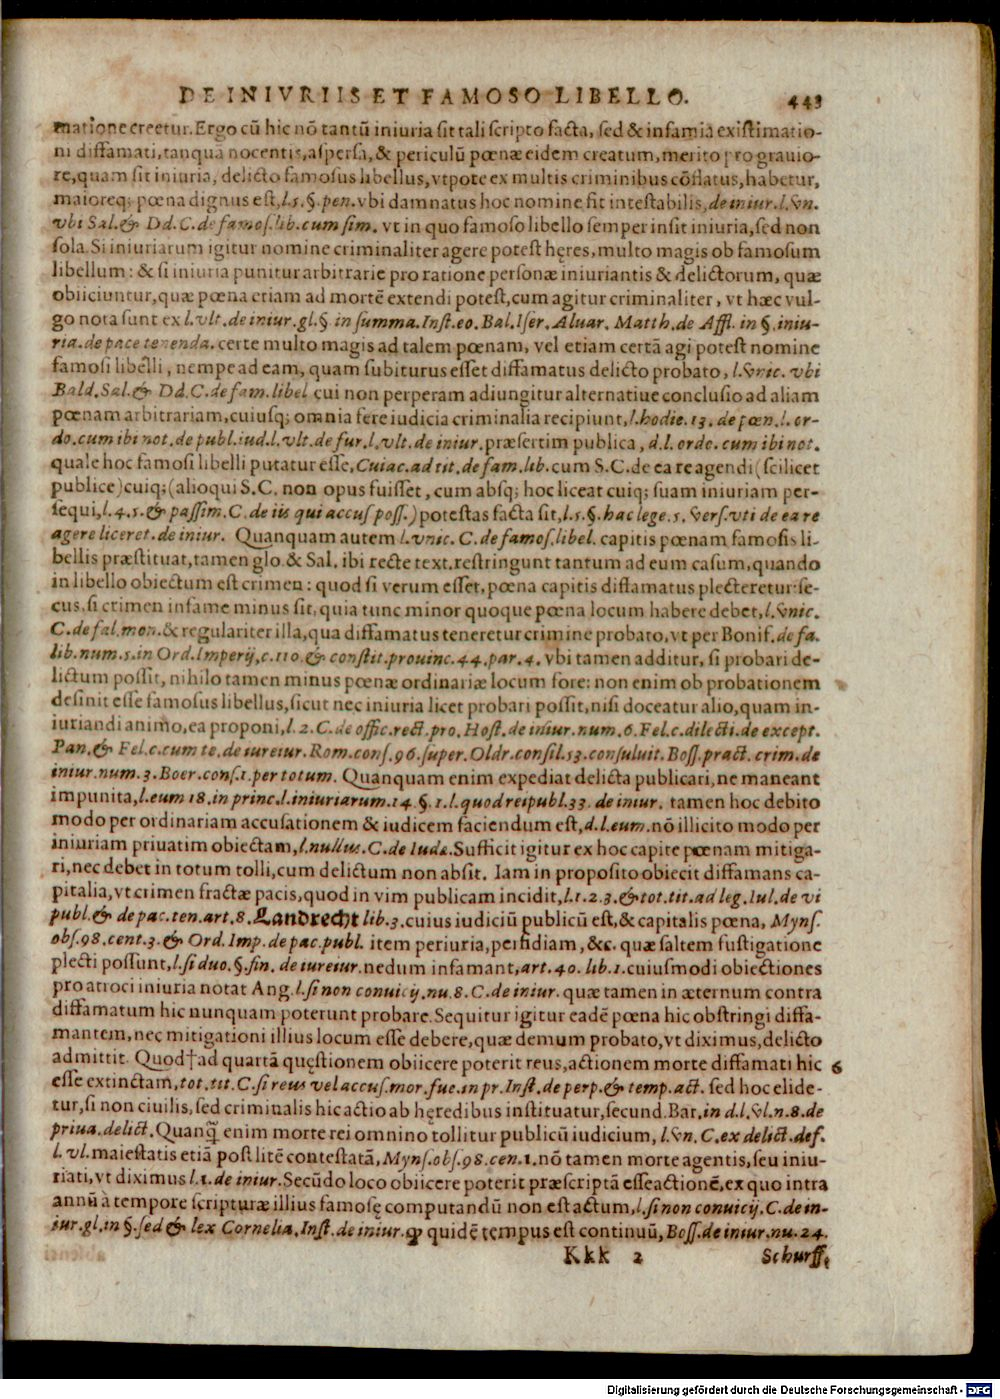 DE INIVRIIS ET FAMOSO LIBELLO. 443
matione creetur. Ergo cū hic nō tantū iniuria sit tali scripto facta, sed & infamiā existimatio-
ni diffamati, tanquā nocentis, aspersa, & periculū pœnæ eidem creatum, merito pro grauio-
re, quam sit iniuria, delicto famosus libellus, vtpote ex multis criminibus cōflatus, habetur,
maioreq; pœna dignus est, l. 5. §. pen. vbi damnatus hoc nomine fit intestabilis, de iniur. l. vn.
vbi Sal. & Dd. C. de famos. lib. cum sim. vt in quo famoso libello semper insit iniuria, sed non
sola. Si iniuriarum igitur nomine criminaliter agere potest hęres, multo magis ob famosum
libellum: & si iniuria punitur arbitrarie pro ratione personæ iniuriantis & delictorum, quæ
obiiciuntur, quæ pœna etiam ad mortē extendi potest, cum agitur criminaliter, vt hæc vul-
go nota sunt ex l. vlt. de iniur. gl. §. in summa. Inst. eo. Bal. Iser. Aluar. Matth. de Affl. in §. iniu-
ria. de pace tenenda. certe multo magis ad talem pœnam, vel etiam certā agi potest nomine
famosi libelli, nempe ad eam, quam subiturus esset diffamatus delicto probato, l. vnic. vbi
Bald. Sal. & Dd. C. de fam. libel cui non perperam adiungitur alternatiue conclusio ad aliam
pœnam arbitrariam, cuiusq; omnia fere iudicia criminalia recipiunt, l. hodie. 13. de pœn. l. or-
do. cum ibi not. de publ. iud. l. vlt. de fur. l. vlt. de iniur. præsertim publica, d. l. ordo. cum ibi not.
quale hoc famosi libelli putatur esse, Cuiac. ad tit. de fam. lib. cum S. C. de ea re agendi (scilicet
publice) cuiq; (alioqui S. C. non opus fuisset, cum absq; hoc liceat cuiq; suam iniuriam per-
sequi, l. 4. 5. & passim. C. de iis qui accus poss.) potestas facta sit, l. 5. §. hac lege. 5. vers. vti de ea re
agere liceret. de iniur. Quanquam autem l. vnic. C. de famos. libel. capitis pœnam famosis li-
bellis præstituat, tamen glo. & Sal. ibi recte text. restringunt tantum ad eum casum, quando
in libello obiectum est crimen: quod si verum esset, pœna capitis diffamatus plecteretur: se-
cus, si crimen infame minus sit, quia tunc minor quoque pœna locum habere debet, l. vnic.
C. de fal. mon. & regulariter illa, qua diffamatus teneretur crimine probato, vt per Bonif. de fa.
lib. num. 5. in Ord. Imperij, c. 110. & constit. prouinc. 44. par. 4. vbi tamen additur, si probari de-
lictum possit, nihilo tamen minus pœnæ ordinariæ locum fore: non enim ob probationem
desinit esse famosus libellus, sicut nec iniuria licet probari possit, nisi doceatur alio, quam in-
iuriandi animo, ea proponi, l. 2. C. de offic. rect. pro. Host. de iniur. num. 6. Fel. c. dilecti. de except.
Pan. & Fel. c. cum te. de iureiur. Rom. cons. 96. super. Oldr. consil. 53. consuluit. Boss. pract. crim. de
iniur. num. 3. Boer. cons. 1. per totum. Quanquam enim expediat delicta publicari, ne maneant
impunita, l. eum 18. in princ. l. iniuriarum. 14. §. 1. l. quod reipubl. 33. de iniur. tamen hoc debito
modo per ordinariam accusationem & iudicem faciendum est, d. l. eum. nō illicito modo per
iniuriam priuatim obiectam, l. nullus. C. de Iudæ. Sufficit igitur ex hoc capite pœnam mitiga-
ri, nec debet in totum tolli, cum delictum non absit. Iam in proposito obiecit diffamans ca-
pitalia, vt crimen fractæ pacis, quod in vim publicam incidit, l. 1. 2. 3. & tot. tit. ad leg. Iul. de vi
publ. & de pac. ten. art. 8. Landrecht lib. 3. cuius iudiciū publicū est, & capitalis pœna, Myns.
obs. 98. cent. 3. & Ord. Imp. de pac. publ. item periuria, perfidiam, &c. quæ saltem fustigatione
plecti possunt, l. si duo. §. fin. de iureiur. nedum infamant, art. 40. lib. 1. cuiusmodi obiectiones
pro atroci iniuria notat Ang. l. si non conuicij. nu. 8. C. de iniur. quæ tamen in æternum contra
diffamatum hic nunquam poterunt probare. Sequitur igitur eadē pœna hic obstringi diffa-
mantem, nec mitigationi illius locum esse debere, quæ demum probato, vt diximus, delicto
admittit. Quod † ad quartā quęstionem obiicere poterit reus, actionem morte diffamati hic 6
esse extinctam, tot. tit. C. si reus vel accus. mor. fue. in pr. Inst. de perp. & temp. act. sed hoc elide-
tur, si non ciuilis, sed criminalis hic actio ab hęredibus instituatur, secund. Bar. in d. l. vl. n. 8. de
priua. delict. Quanq̃ enim morte rei omnino tollitur publicū iudicium, l. vn. C. ex delict. def.
l. vl. maiestatis etiā post litē contestatā, Myns. obs. 98. cen. 1. nō tamen morte agentis, seu iniu-
riati, vt diximus l. 1. de iniur. Secūdo loco obiicere poterit præscriptā esse actionē, ex quo intra
annū à tempore scripturæ illius famosę computandū non est actum, l. si non conuicij. C. de in-
iur. gl. in §. sed & lex Cornelia. Inst. de iniur. ꝙ quidē tempus est continuū, Boss. de iniur. nu. 24.
Kkk 2 Schurff.
Digitalisierung gefördert durch die Deutsche Forschungsgemeinschaft - DFG